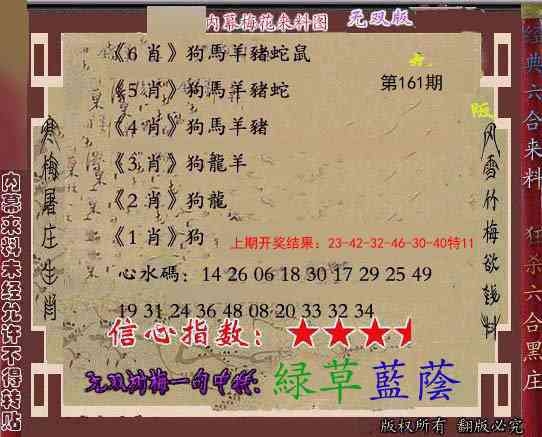 内幕梅花来料图 无双版
《6 肖》狗馬羊豬蛇鼠
第161期
《5 肖》狗馬羊豬蛇
《4 肖》狗馬羊豬
《3 肖》狗龍羊
《2 肖》狗龍
《1 肖》狗
上期开奖结果：23-42-32-46-30-40特11
心水碼：14 26 06 18 30 17 29 25 49
19 31 24 36 48 08 20 33 32 34
信心指数：
无双剑梅一句中特：綠草藍蔭
版权所有 翻版必究
寒梅屠庄生肖
内幕来料未经允许不得转贴
风雪竹梅欲钱料
版
经典六合来料
狂杀六合黑庄